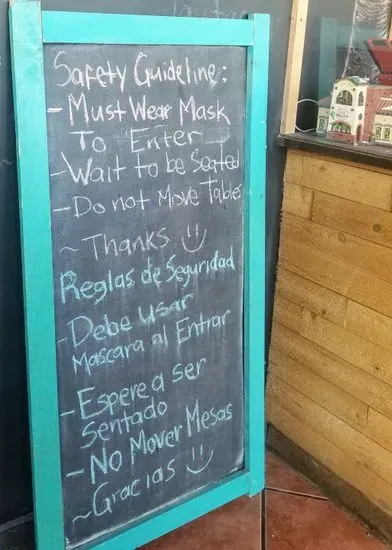 Safety Guideline:
- Must Wear Mask
To Enter
- Wait to be Seated
- Do not Move Tables
~ Thanks :)
Reglas de Seguridad
- Debe usar
Mascara al Entrar
- Espere a ser
Sentado
- No Mover Mesas
~ Gracias :)